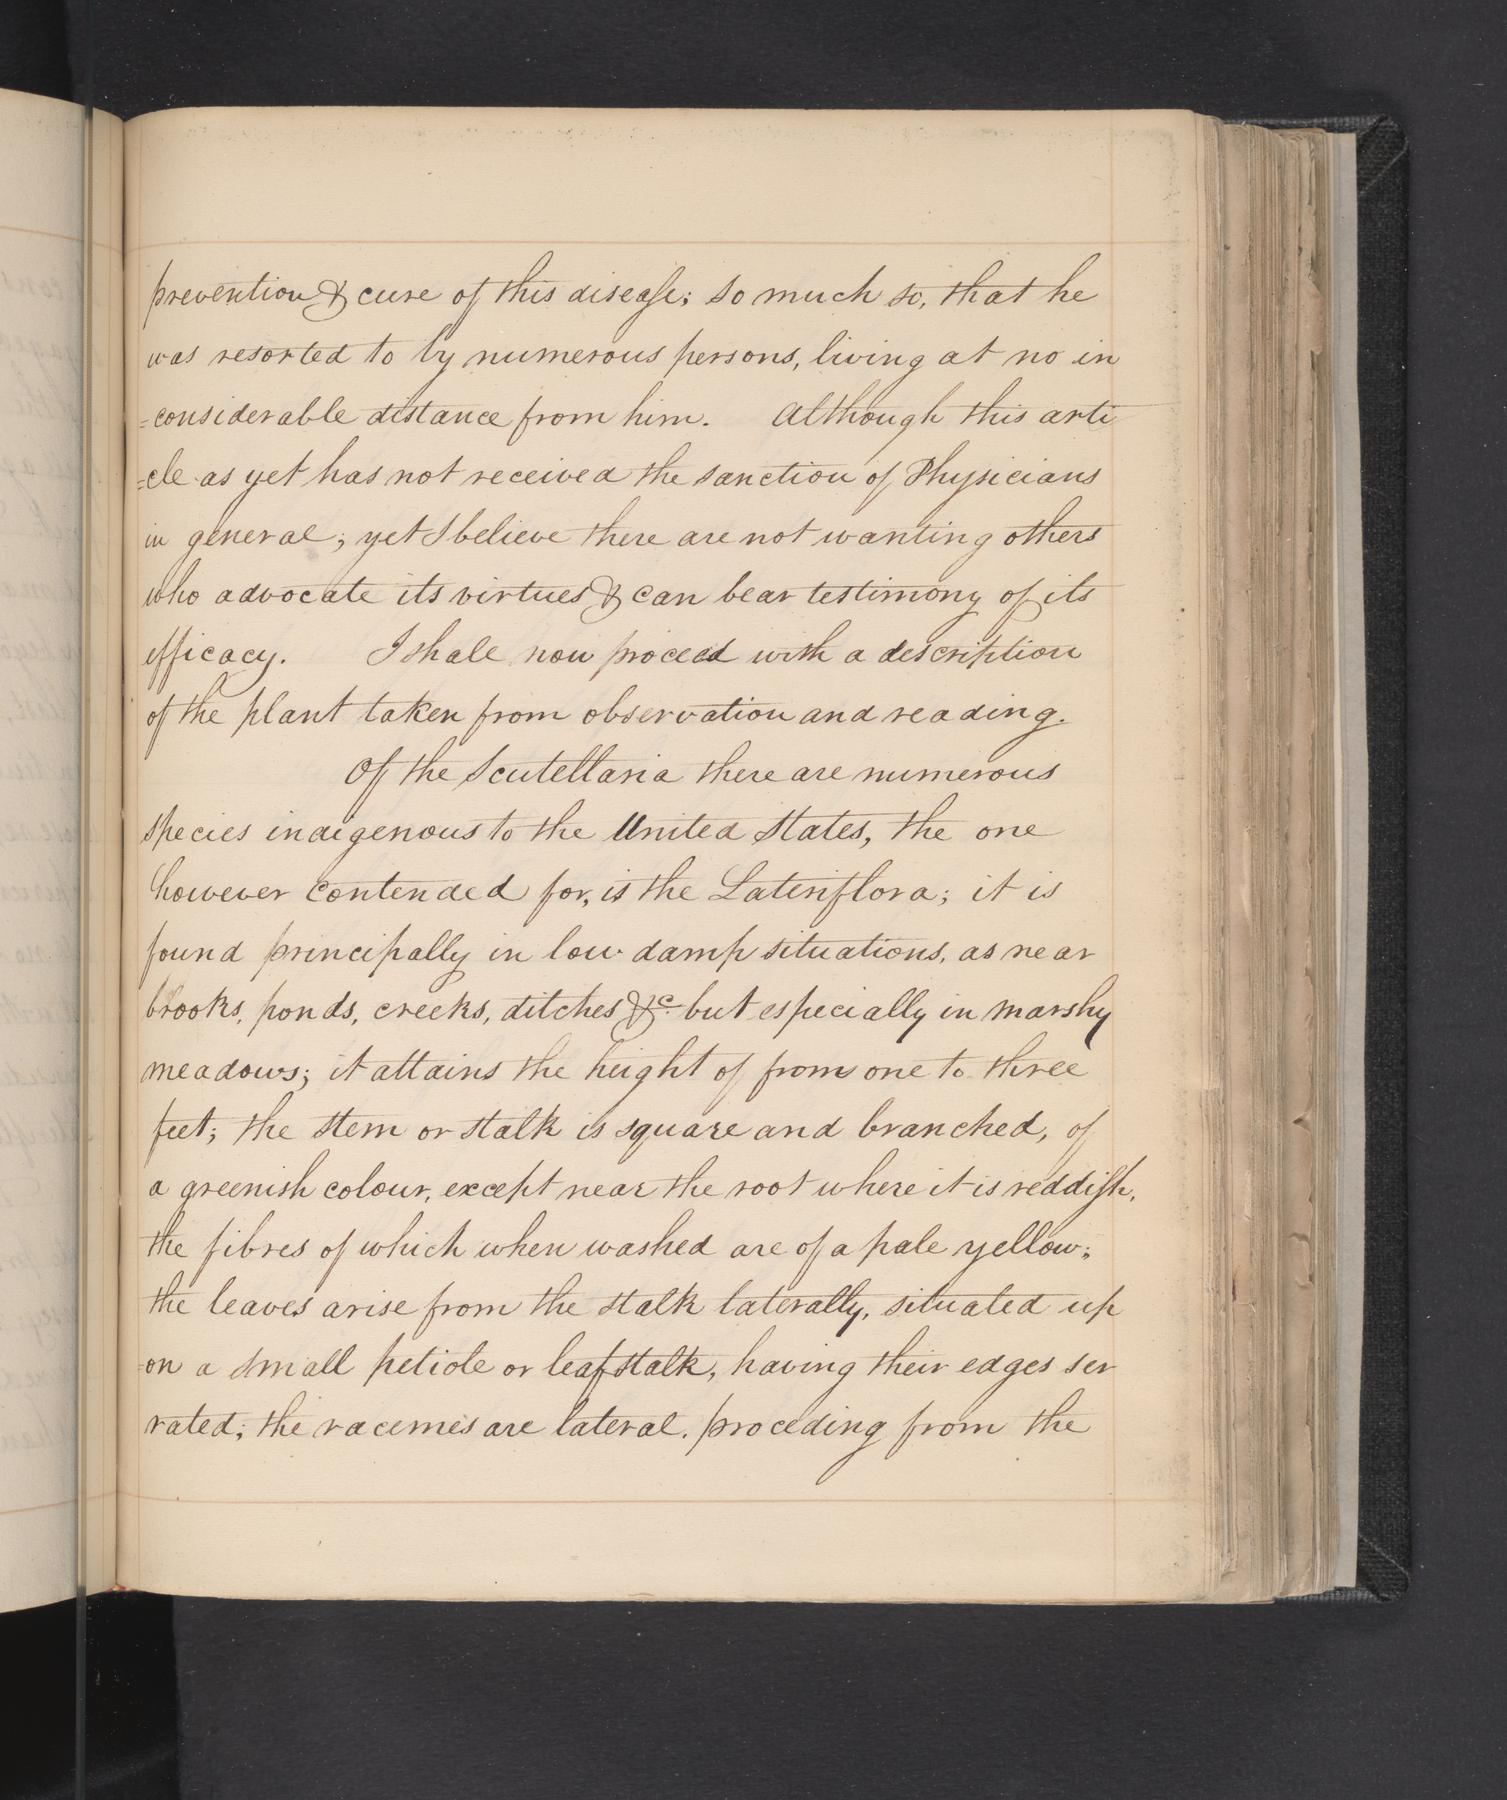 prevention & cure of this disease; so much so, that he
was resorted to by numerous persons, living at no in
=considerable distance from him. Although this arti
=cle as yet has not received the sanction of Physicians
in general; yet I believe there are not wanting others
who advocate its virtues & can bear testimony of its
efficacy. I shall now proceed with a description
of the plant taken from observation and reading.
Of the Scutellaria there are numerous
species indigenous to the United States, the one
however contended for, is the Lateriflora; it is
found principally in low damp situations, as near
brooks, ponds, creeks, ditches &c. but especially in marshy
meadows; it attains the height of from one to three
feet; the stem or stalk is square and branched, of
a greenish colour, except near the root where it is reddish,
the fibres of which when washed are of a pale yellow;
the leaves arise from the stalk laterally, situated up
=on a small petiole or leafstalk, having their edges ser
rated; the racemes are lateral, proceding from the